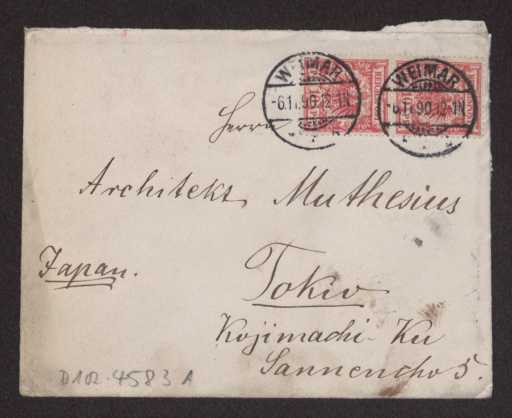 WEIMAR
-6.11.90.12-1N
WEIMAR
-6.11.90.12-1N
Herrn
Architekt Muthesius
Japan.
Tokio
Kojimachi-Ku
Sannencho 5.
D102-4583 A